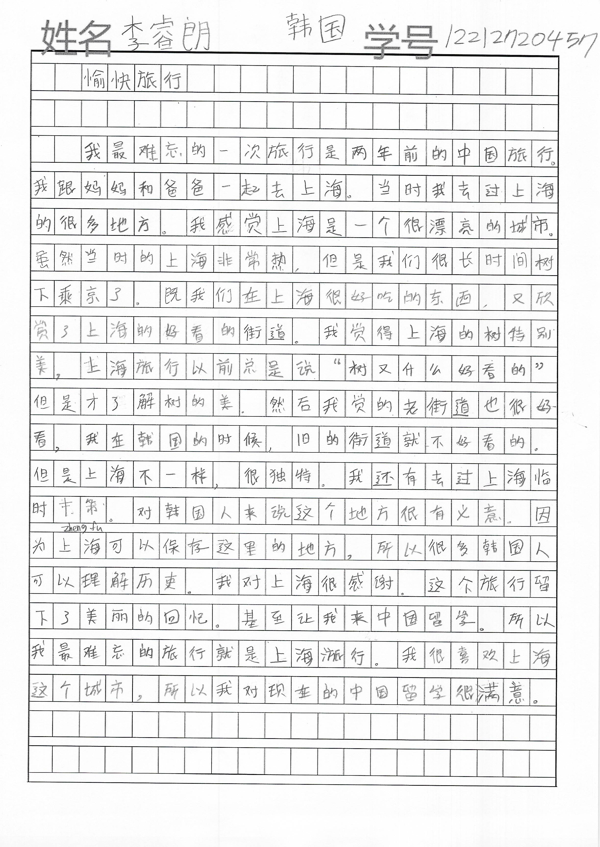 姓名 李睿朗 韩国 学号 12212720457
愉快旅行
我最难忘的一次旅行是两年前的中国旅行。
我跟妈妈和爸爸一起去上海。当时我去过上海
的很多地方。我感觉上海是一个很漂亮的城市。
虽然当时的上海非常热，但是我们很长时间树
下乘京了。既我们在上海很好吃的东西，又欣
赏了上海的好看的街道。我觉得上海的树特别
美，上海旅行以前总是说“树又什么好看的”
但是才了解树的美．然后我觉的老街道也很好
看，我在韩国的时候，旧的街道就不好看的．
但是上海不一样，很独特。我还有去过上海临
时 ．对韩国人来说这个地方很有义意．因
zheng fu
为上海可以保存这里的地方，所以很多韩国人
可以理解历史．我对上海很感谢．这个旅行留
下了美丽的回忆。甚至让我来中国留学。所以
我最难忘的旅行就是上海旅行．我很喜欢上海
这个城市，所以我对现在的中国留学很满意。